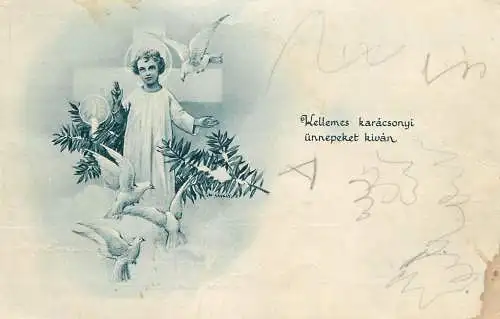 Kellemes karácsonyi
ünnepeket kíván